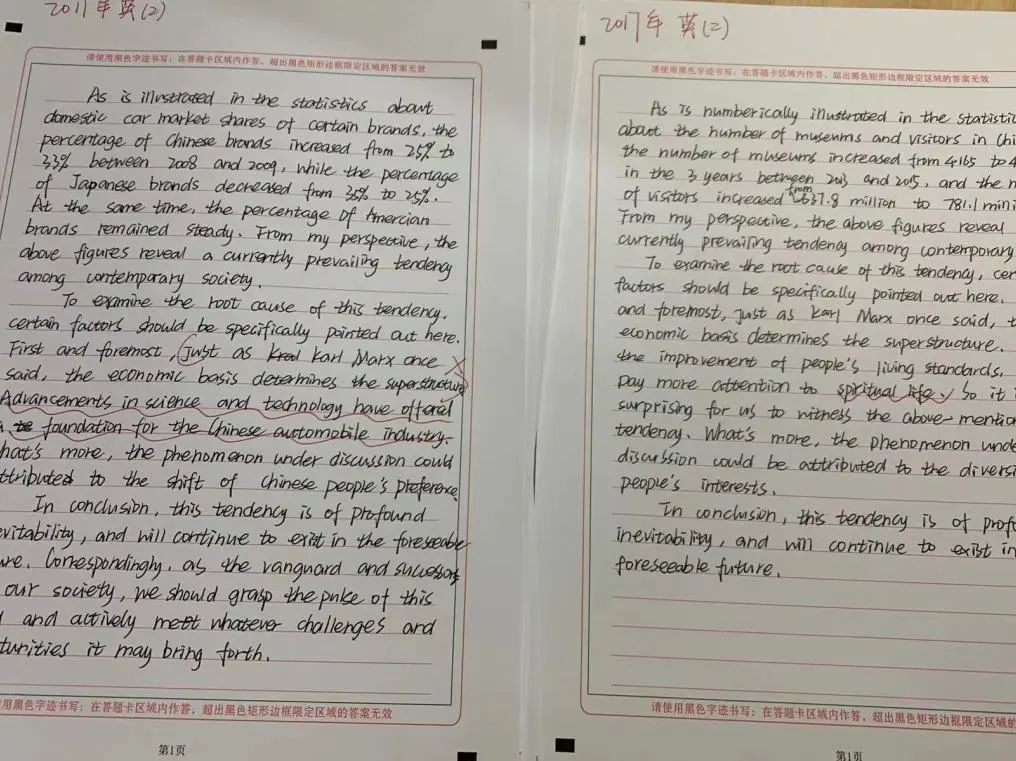 2011年 英(2)
请使用黑色字迹书写:在答题卡区域内作答,超出黑色矩形边框限定区域的答案无效
As is illustrated in the statistics about
domestic car market shares of certain brands, the
percentage of Chinese brands increased from 25% to
33% between 2008 and 2009, while the percentage
of Japanese brands decreased from 35% to 25%.
At the same time, the percentage of Amercian
brands remained steady. From my perspective, the
above figures reveal a currently prevailing tendency
among contemporary society.
To examine the root cause of this tendency,
certain factors should be specifically pointed out here.
First and foremost, just as karl Marx once
said, the economic basis determines the superstructure
Advancements in science and technology have offered
foundation for the Chinese automobile industry.
hat's more, the phenomenon under discussion could
ttributed to the shift of Chinese people's preference.
In conclusion, this tendency is of profound
evitability, and will continue to exist in the foreseeable
ure. Correspondingly, as the vanguard and successors
our society, we should grasp the pulse of this
and actively meet whatever challenges and
tunities it may bring forth.
用黑色字迹书写:在答题卡区域内作答,超出黑色矩形边框限定区域的答案无效
第1页
2017年 英(二)
请使用黑色字迹书写:在答题卡区域内作答,超出黑色矩形边框限定区域的答案无效
As is numberically illustrated in the statistic
about the number of museums and visitors in Chi
the number of museums increased from 4165 to 4
in the 3 years between 2013 and 2015, and the n
of visitors increased from 637.8 million to 781.1 mini
From my perspective, the above figures reveal
currently prevailing tendency among contemporary
To examine the root cause of this tendency, cer
factors should be specifically pointed out here.
and foremost, just as karl Marx once said, t
economic basis determines the superstructure.
the improvement of people's living standards,
pay more attention to spiritual life. So it i
surprising for us to witness the above-mention
tendency. What's more, the phenomenon unde
discussion could be attributed to the diversi
people's interests.
In conclusion, this tendency is of prof
inevitability, and will continue to exist in
foreseeable future.
请使用黑色字迹书写:在答题卡区域内作答,超出黑色矩形边框限定区域的
第1页